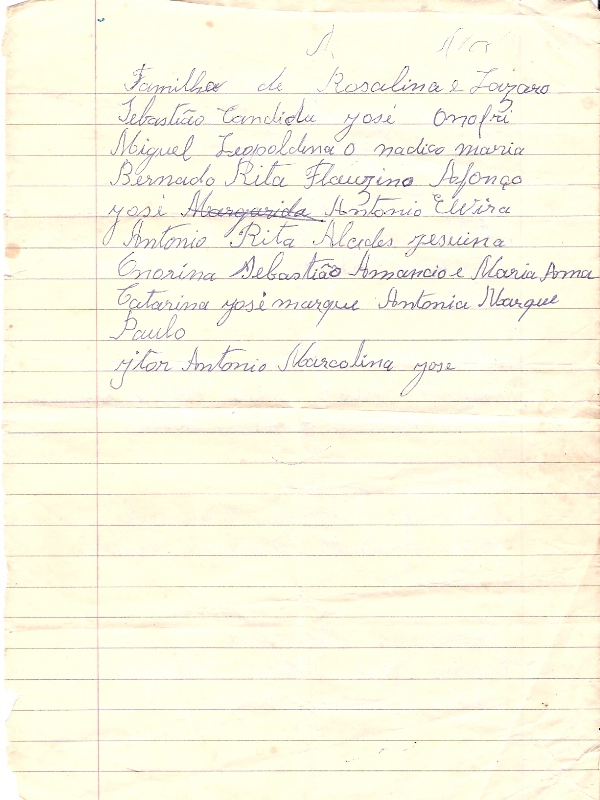 Familha de Rosalina e Lazaro
Sebastião Candida José Onofri
Miguel Leopoldina o nadico maria
Bernado Rita Flauzino Afonço
José Margarida Antonio Elvira
Antonio Rita Alcides Jesuina
Onorina Sebastião Amancio e Maria Ama
Catarina José marque Antonia Marque
Paulo
Antonio Marcolina Jose